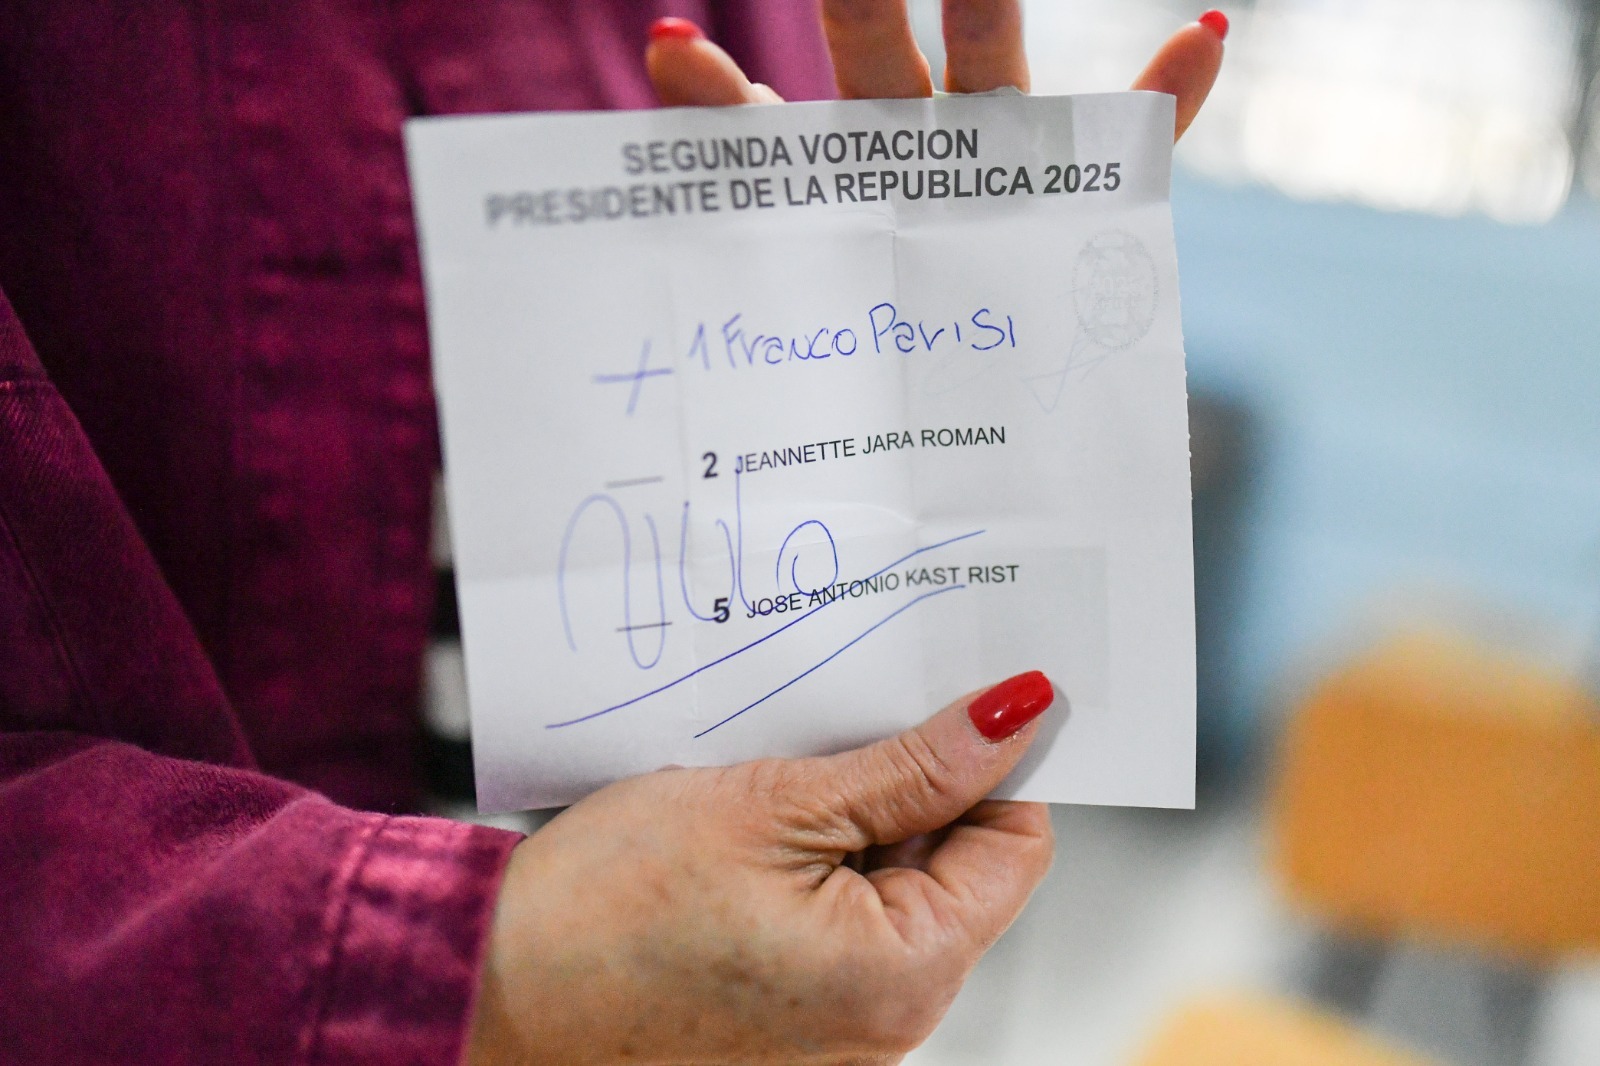 SEGUNDA VOTACION
PRESIDENTE DE LA REPUBLICA 2025
+ 1 Franco Parisi
2 JEANNETTE JARA ROMAN
NULO
5 JOSE ANTONIO KAST RIST